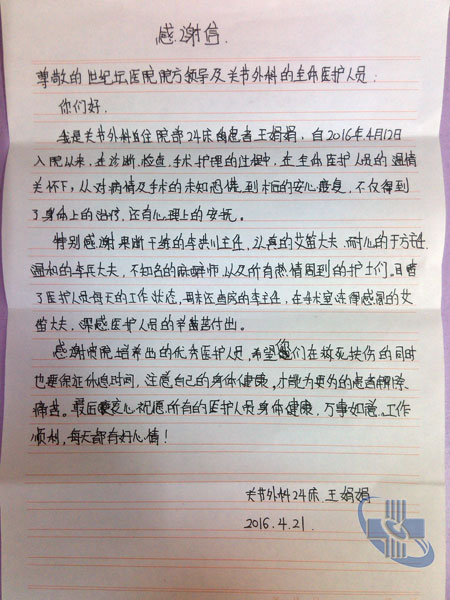 感谢信.
尊敬的世纪坛医院院方领导及关节外科的全体医护人员:
你们好.
我是关节外科住院部24床的患者王娟娟,自2016年4月12日
入院以来,在诊断、检查、手术护理的过程中,在全体医护人员的温情
关怀下,从对病情及手术的未知恐惧,到术后的安心康复,不仅得到
了身体上的治疗,还有心理上的安抚。
特别感谢果断干练的李洪川主任,认真的艾笛大夫,耐心的于方主任
温和的李兵大夫,不知名的麻醉师,以及所有热情周到的护士们。目睹
了医护人员每天的工作状态,周末还查房的李主任,在手术室连得感冒的艾
笛大夫,深感医护人员的辛勤苦付出。
感谢贵院培养出的优秀医护人员,希望你们在救死扶伤的同时
也要保证休息时间,注意自己的身体健康,才能为更多的患者解除
痛苦。最后衷心祝愿所有的医护人员身体健康,万事如意,工作
顺利,每天都有好心情!
关节外科24床 王娟娟
2016.4.21.